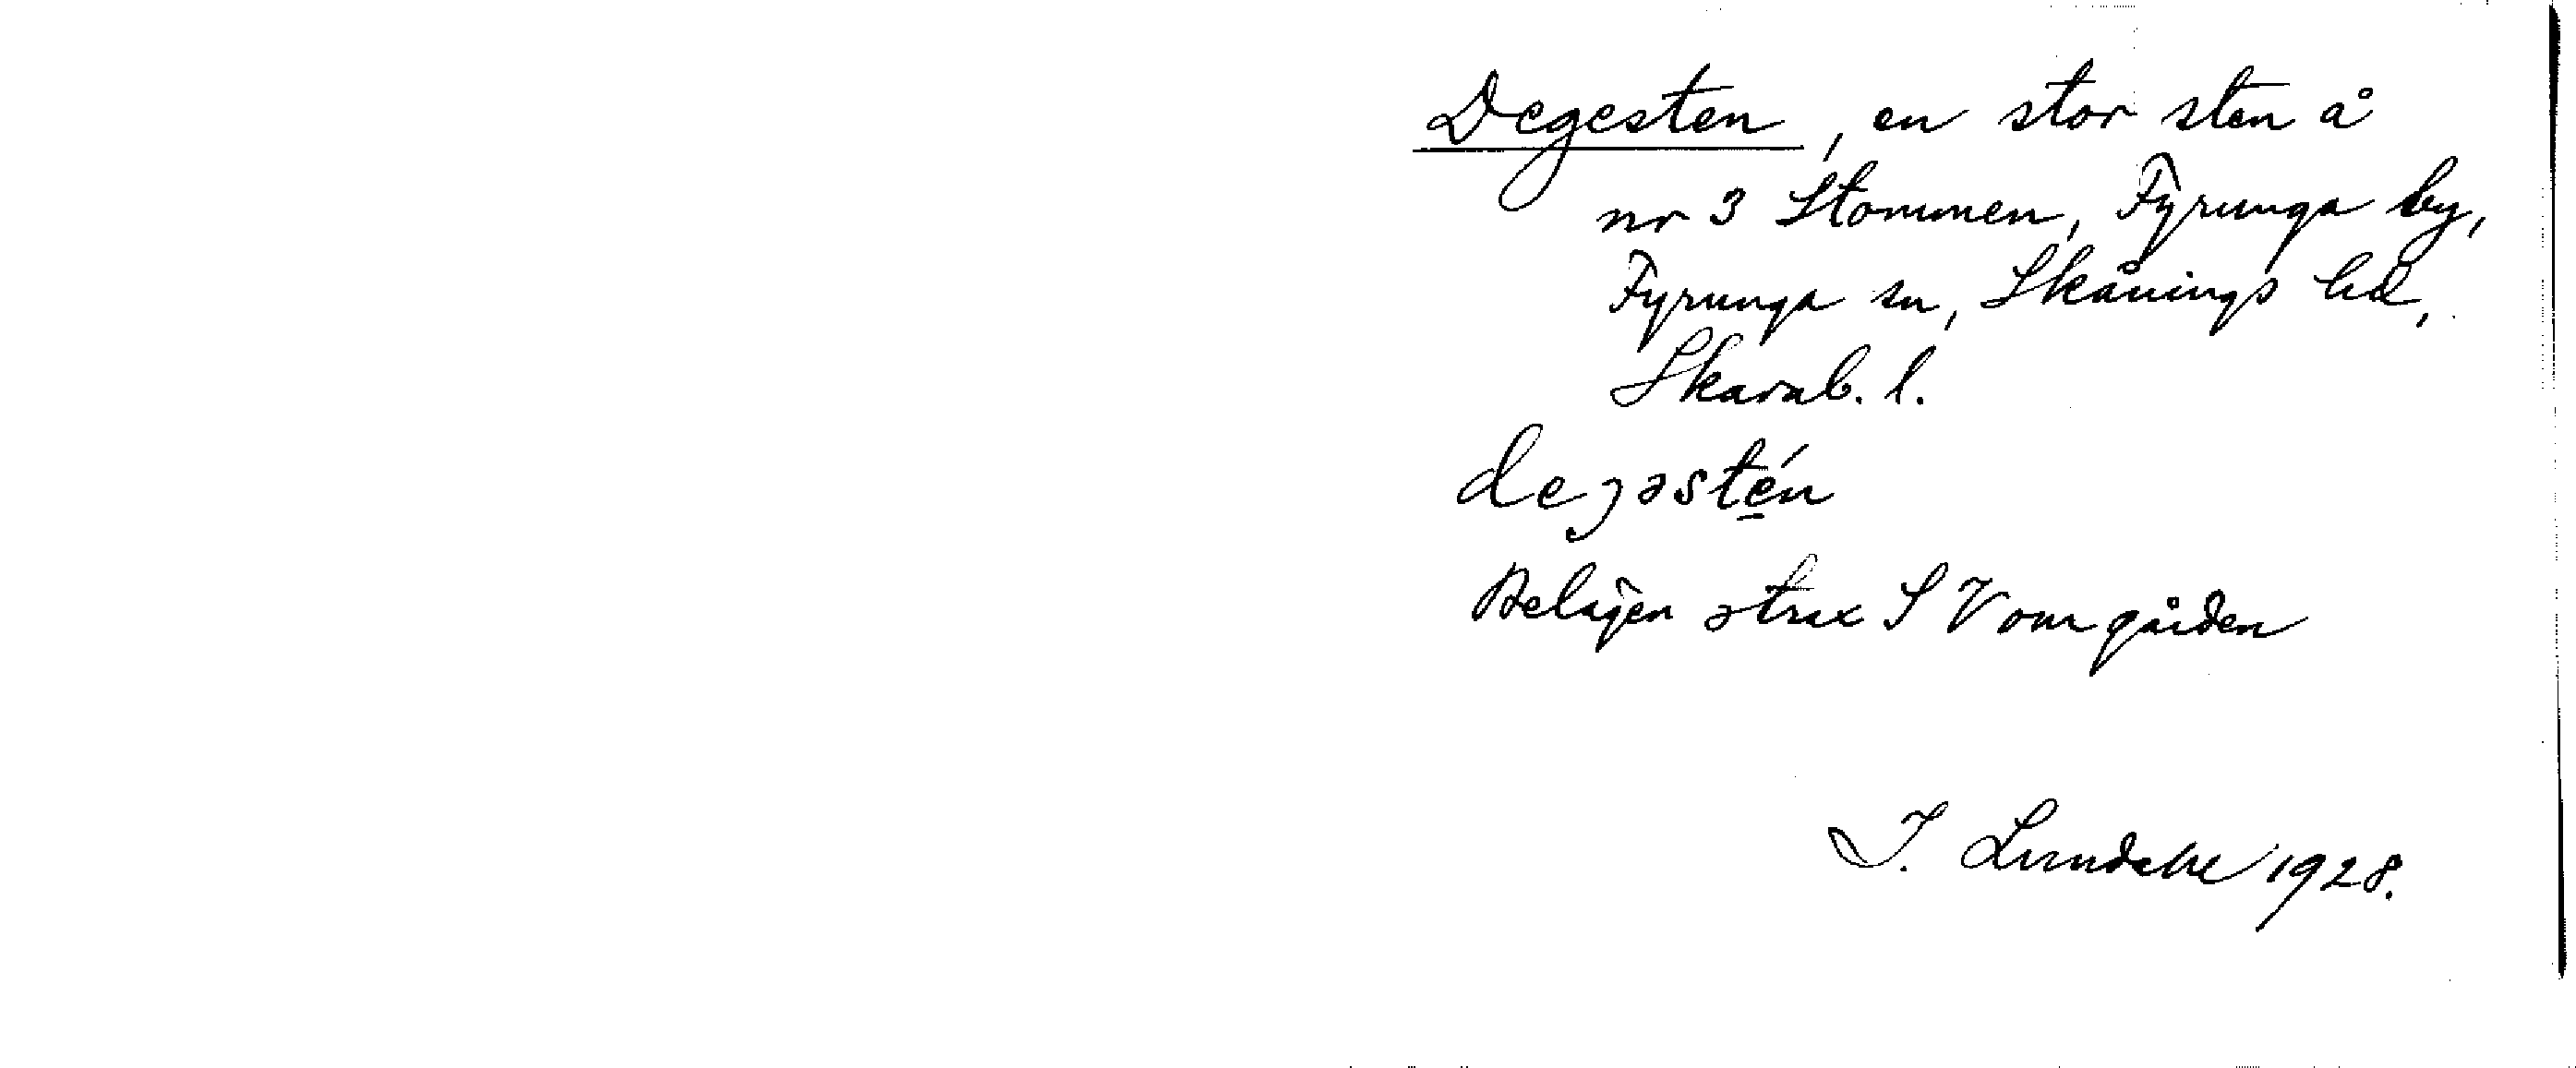 Degesten, en stor sten å
nr 3 Stommen, Fyrunga by,
Fyrunga sn, Skånings hd,
Skarab. l.
deɟəstén
Belägen strax S V om gården
J. Lundahl 1928.